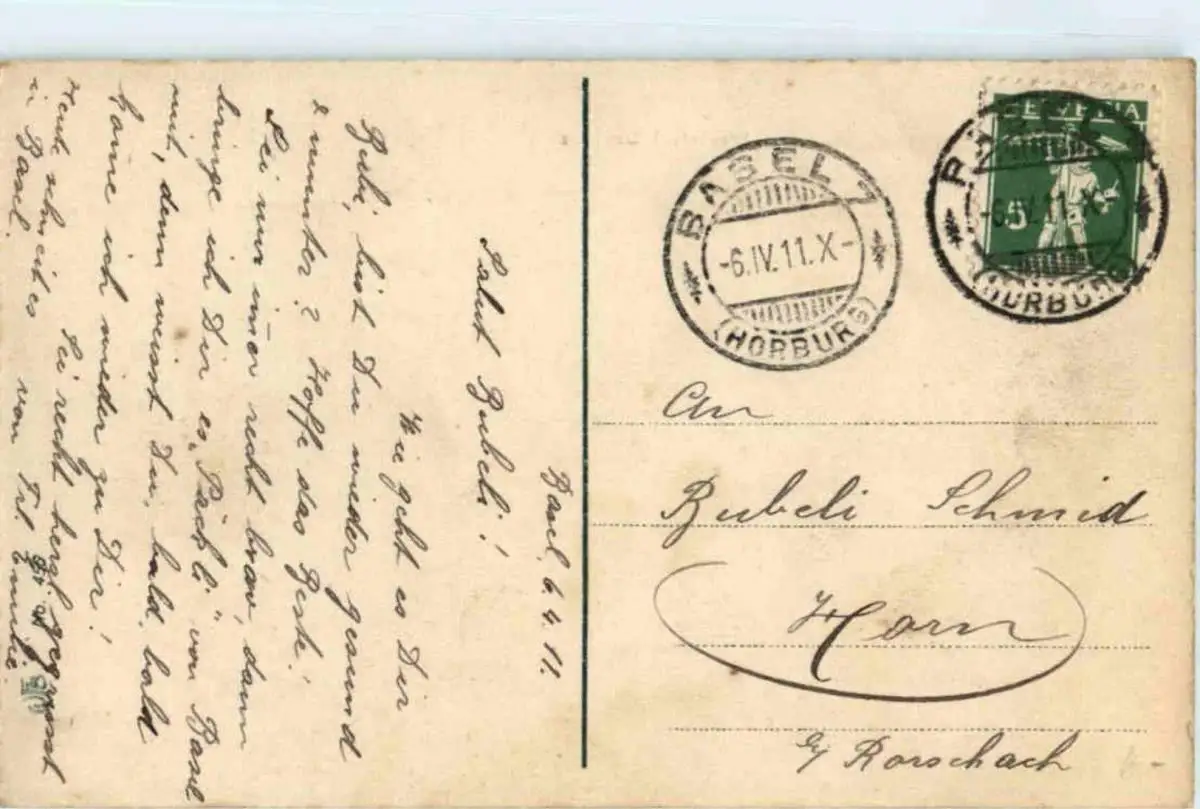 Basel, 6.4.11.
Salut Bubeli!
Wie geht es Dir
Bubi, bist Du wieder gesund
& munter? Hoffe das Beste!
Sei nur immer recht brav, dann
bringe ich Dir es „Päckli" von Basel
mit, denn weisst Du, bald, bald
kome ich wieder zu Dir!
Sei recht herzl. gegrüsst
von Frl. Emmy.
Heute schneit es
in Basel.
HELVETIA
5
BASEL 7
-6.IV.11.X-
(HORBURG)
BASEL 7
-6.IV.11.X-
(HORBURG)
An
Bubeli Schmid
Horn
b/ Rorschach